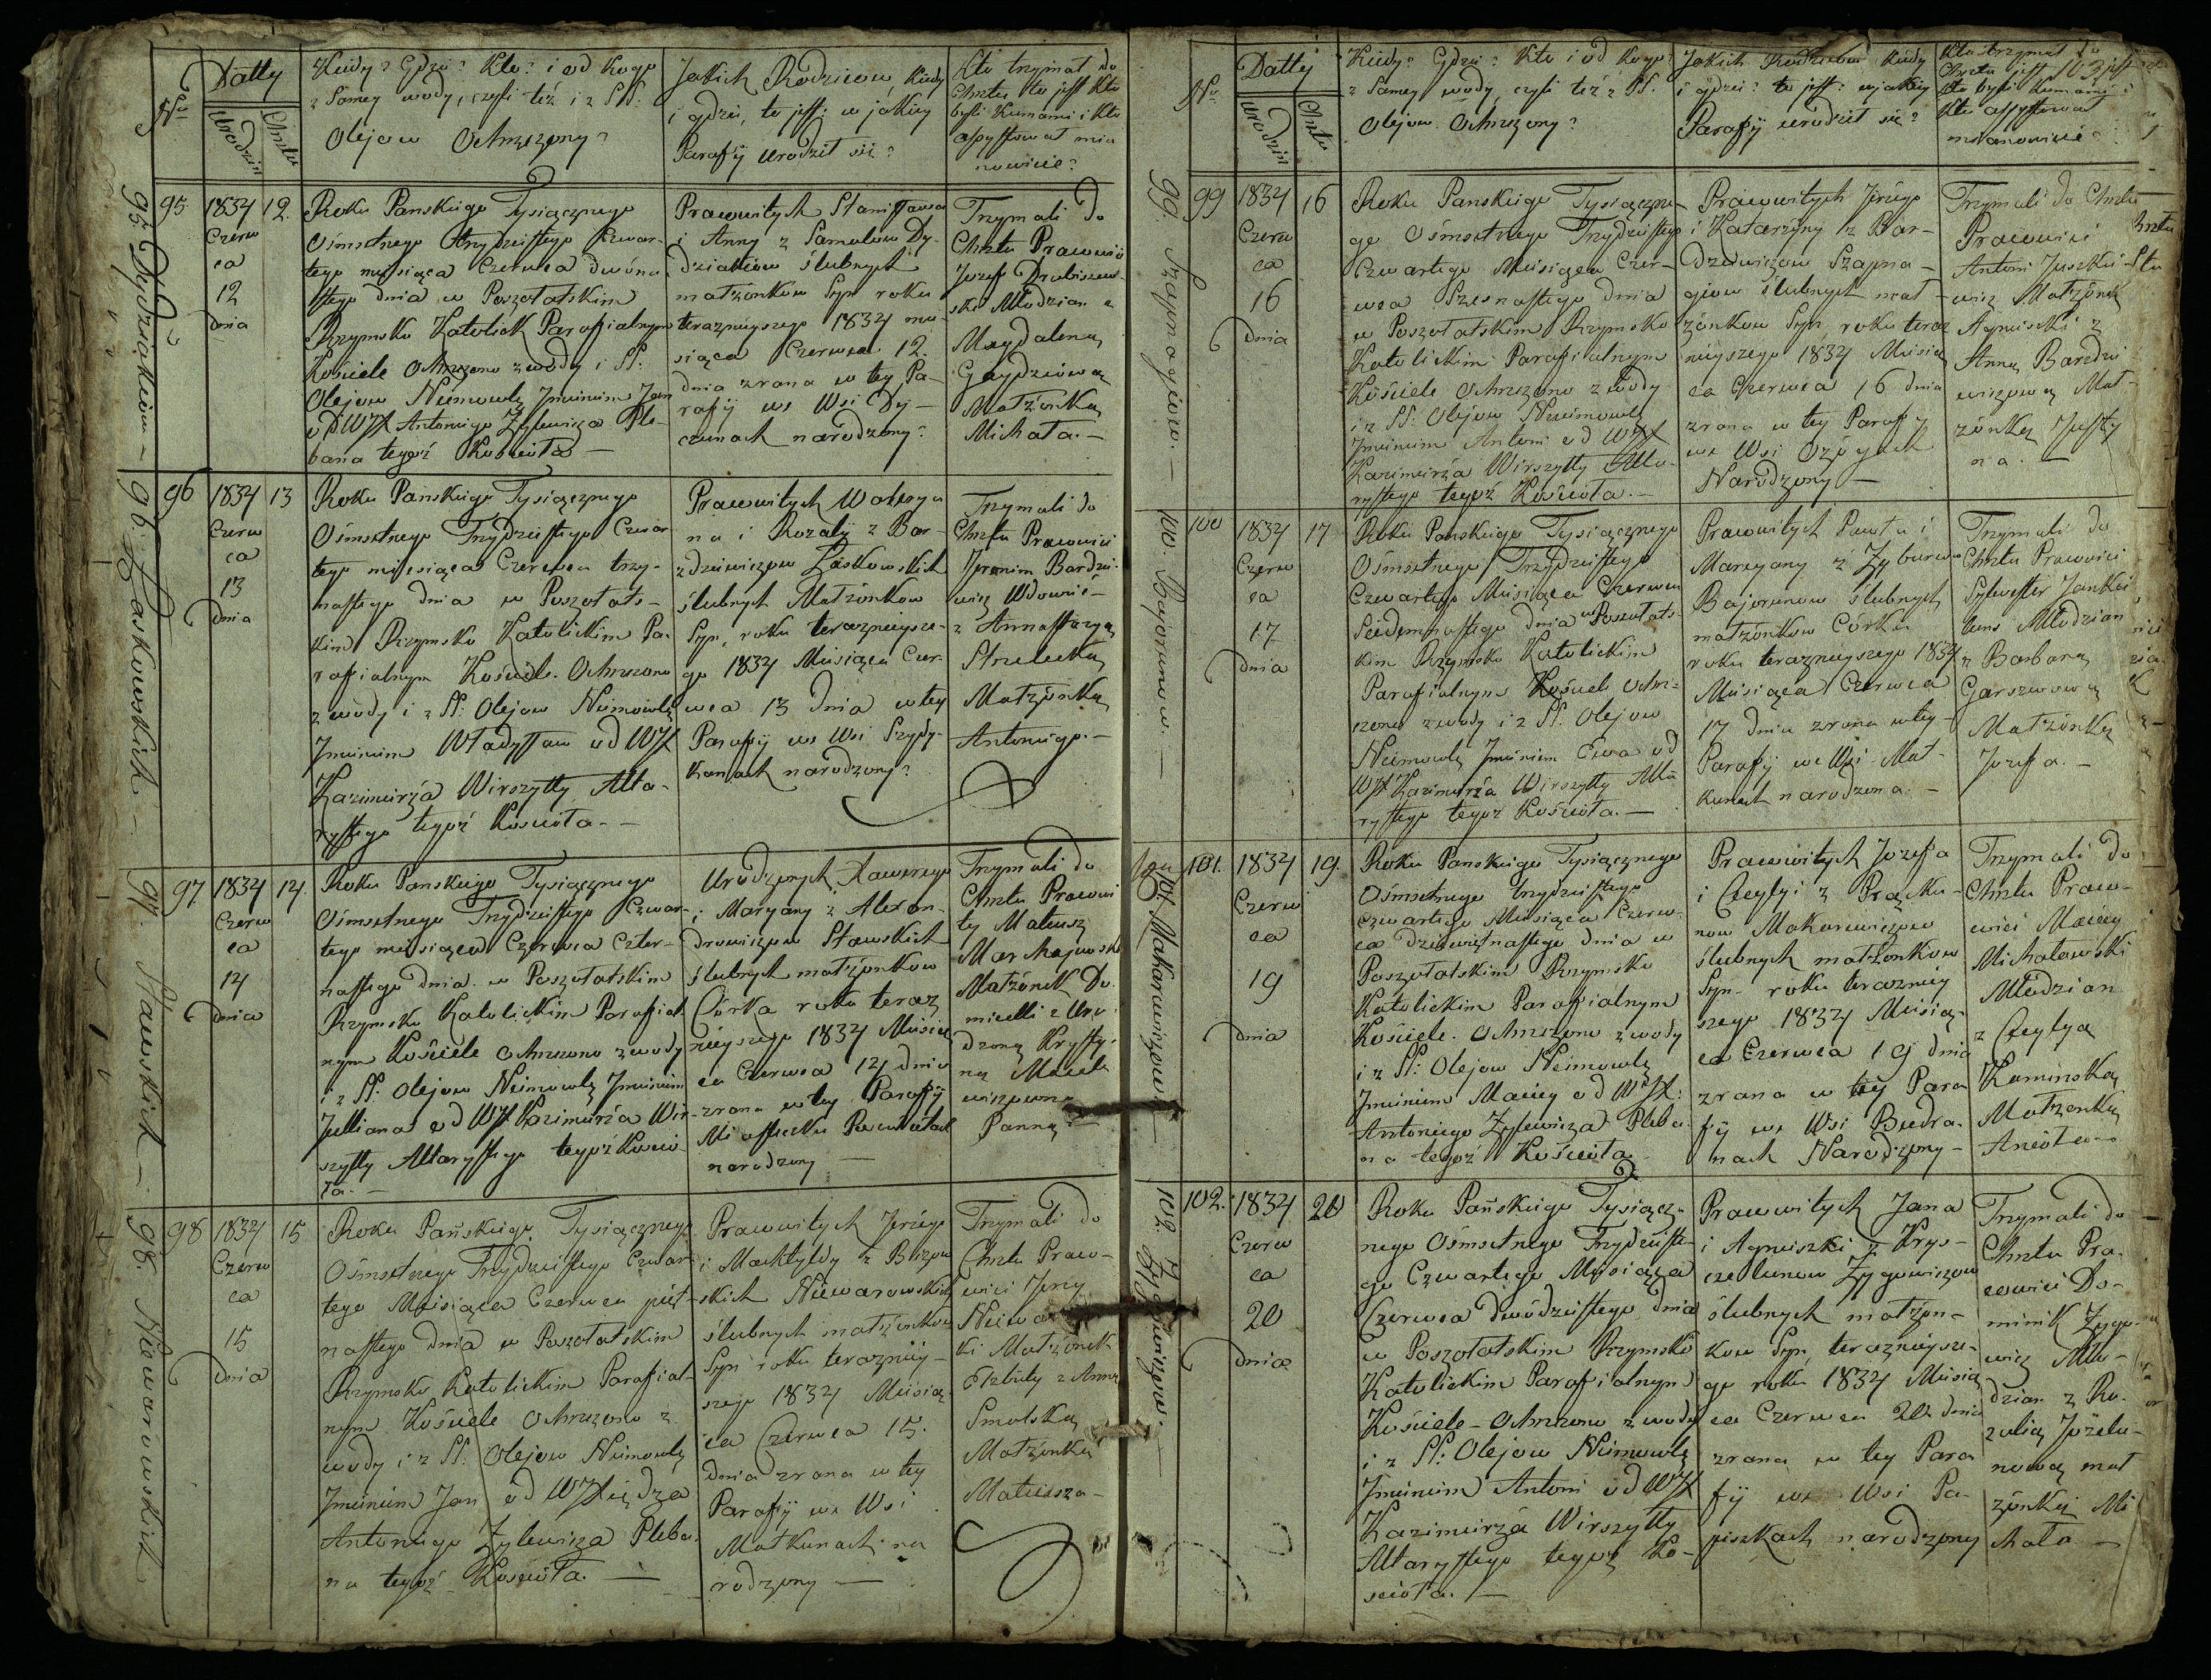 Nro
Datty
Urodzin
Chrztu
Kiedy? Gdzie? Kto? i od Kogo
z Samey wody, czyli też i z SS:
Olejow Ochrzczony?
Jakich Rodzicow, kiedy
i gdzie, to jest: w jakiey
Parafij urodził się?
Kto trzymał do
Chrztu to jest kto
byli Kumami i kto
assystował mia
nowicie?
95. Dydziakiow –
95
1834
Czerw
ca
12
dnia
12.
Roku Panskiego Tysiącznego
Osmsetnego Trzydziestego Czwar-
tego miesiąca Czerwca dwóna
stego dnia w Poszołatskim
Rzymsko Katolick Parafialnym
Kościele Ochrzczono z wody i SS:
Olejow Niemowlę Jmieniem Jan
od WJX Antoniego Żylewicza Ple-
bana tegoż Kościoła –
Prawowitych Stanisława
i Anny z Samulow Dy-
dziakiow ślubnych
małżonkow Syn roku
teraznieyszego 1834 mie-
siąca Czerwca 12.
dnia zrana w tey Pa-
rafij we Wsi Dy-
czunach narodzony?
Trzymali do
Chrztu Prawowici
Jozef Drobiszew-
ski Młodzian z
Magdaleną
Gaydziową
Małżonką
Michała. –
96. Laskowskich –
96
1834
Czerw
ca
13
dnia
13
Roku Pańskiego Tysiącznego
Osmsetnego Trzydziestego Czwar
tego miesiąca Czerwca trzy-
nastego dnia w Poszołats-
kim Rzymsko Katolickim Pa-
rafialnym Kościele. Ochrzczono
z wody i z SS: Olejow Niemowlę
Jmieniem Władysław od WJX
Kazimierza Wirszyłły Alta-
rystego tegoż Kościoła. –
Prawowitych Walerya
na i Rozalij z Bar-
dziewiczow Laskowskich
ślubnych Małżonkow
Syn, roku teraznieysze-
go 1834 Miesiąca Czer-
wca 13 dnia w tey
Parafij we Wsi Szydy-
kanach narodzony?
Trzymali do
Chrztu Prawowici
Jeronim Bardzie
wicz Wdowiec
z Annastazyą
Strzelecką
Małżonką
Antoniego. –
97. Stawskich –
97
1834
Czerw
ca
14
dnia
14.
Roku Panskiego Tysiącznego
Osmsetnego Trzydziestego Czwar-
tego miesiąca Czerwca Czter-
nastego dnia. w Poszołatskim
Rzymsko Katolickim Parafial
nym Kościele Ochrzczono z wody
i z SS. Olejow Niemowlę Jmieniem
Julliana od WJX Kazimierza Wir-
szyłły Altarystego tegoż Kościo-
ła. –
Urodzonych Xawerego
i Maryany z Alexan-
drowiczow Stawskich
ślubnych małżonkow
Córka roku teraz
nieyszego 1834 Miesią
ca Czerwca 14 dnia
zrana w tey Parafij
Miasteczku
narodzony –
Trzymali do
Chrztu Prawowi
ty Mateusz
Małżonek Do.
micelli z Uro-
dzoną Krysty-
ną
Panną –
98. Niewarowskich
98
1834
Czerw
ca
15
dnia
15
Roku Pańskiego Tysiącznego
Osmsetnego Trzydziestego Czwar
tego Miesiąca Czerwca pięt-
nastego dnia w Poszołatskim
Rzymsko Katolickim Parafial-
nym Kościele Ochrzczono z
wody i z SS. Olejow Niemowlę
Jmieniem Jan od WJXiędza
Antoniego Żylewicza Pleba-
na tegoż Kościoła. –
Prawowitych Jerzego
i Macktyldy z Brzozow
skich Niewarowskich
ślubnych małżonkow
Syn roku terazniey-
szego 1834 Miesią
ca Czerwca 15.
dnia zrana w tey
Parafij we Wsi
Małkunach na
rodzony –
Trzymali do
Chrztu Prawo-
wici Jerzy
ki Małżonek
Elzbiety z Anną
Smolską
Małżonką
Mateusza –
103
Nro
Datty
Urodzin
Chrztu
Kiedy? Gdzie? Kto i od Kogo?
z Samey wody czyli też z SS.
Olejow Ochrzczony?
Jakich Rodzicow kiedy
i gdzie? to jest: w jakiey
Parafij urodził się?
Kto trzymał do
Chrztu jest
kto byli kumami i
kto assystował
mianowicie?
99. Szapnagiow. –
99
1834
Czerw
ca
16
dnia
16
Roku Panskiego Tysiączne-
go Osmsetnego Trzydziestego
Czwartego Miesiąca Czer-
wca Szesnastego dnia
w Poszołatskim Rzymsko
Katolickim Parafialnym
Kościele Ochrzczono z wody
i z SS. Olejow Niemowlę
Jmieniem Antoni od WJX
Kazimierza Wirszyłły Alta-
rystego tegoż Kościoła. –
Prawowitych Jerzego
i Katarzyny z Bar-
dziewiczow Szapna-
giow ślubnych mał-
żonkow Syn, roku teraz
nieyszego 1834 Miesią
ca Czerwca 16 dnia
zrana w tey Parafij
we Wsi Ożogach
Narodzony –
Trzymali do Chrztu
Prawowici
Antoni Juszkie-
wicz Małżonek
Agnieszki z
Anną Bardzie
wiczową Mał-
żonką Justy
na. –
100. Bajorunow. –
100
1834
Czerw
ca
17
dnia
17
Roku Panskiego Tysiącznego
Osmsetnego Trzydziestego
Czwartego Miesiąca Czerwca
Siedemnastego dnia w Poszołats-
kim Rzymsko Katolickim
Parafialnym Kościele Ochr-
czono z wody i z SS. Olejow
Niemowlę Jmieniem Ewa od
WJX Kazimierza Wirszyłły Alta
rystego tegoż Kościoła. –
Prawowitych Pawła i
Maryany z
Bajorunow ślubnych
małżonkow Córka
roku teraznieyszego 1834
Miesiąca Czerwca
17 dnia zrana w tey
Parafij we Wsi Mał-
kunach narodzona. –
Trzymali do
Chrztu Prawowici
Sylwester
Młodzian
z Barbarą
Garszwową
Małżonką
Jozefa. –
101. Makarewiczow –
101.
1834
Czerw
ca
19
dnia
19.
Roku Panskiego Tysiącznego
Osmsetnego Trzydziestego
Czwartego Miesiąca Czerw-
ca dziewiętnastego dnia w
Poszołatskim Rzymsko
Katolickim Parafialnym
Kościele. Ochrzczono z wody
i z SS: Olejow Niemowlę
Jmieniem Maciey od WJX:
Antoniego Żylewicza Pleba-
na tegoż Kościoła.
Prawowitych Jozefa
i Cecylyi z
Makarewiczow
ślubnych małżonkow
Syn roku teraźniey
szego 1834 Miesią-
ca Czerwca 19 dnia
zrana w tey Para
fij we Wsi Budra-
nach Narodzony –
Trzymali do
Chrztu Prawo-
wici Maciey
Michałowski
Młodzian
z Cecylyą
Kaminską
Małżonką
102. Zygowiczow. –
102.
1834
Czerw
ca
20
dnia
20
Roku Pańskiego Tysiącz-
nego Osmsetnego Trzydzieste-
go Czwartego Miesiąca
Czerwca dwódziestego dnia
w Poszołatskim Rzymsko
Katolickim Parafialnym
Kościele – Ochrzczono z wody
i z SS: Olejow Niemowlę
Jmieniem Antoni od WJX
Kazimierza Wirszyłły
Altarystego tegoż Ko-
ścioła. –
Prawowitych Jana
i Agnieszki z Krys-
Zygowiczow
ślubnych małżon-
kow Syn, teraznieysze-
go roku 1834 Miesią
ca Czerwca 20 dnia
zrana w tey Para
fij we Wsi Pa-
piszkach narodzony
Trzymali do
Chrztu Pra-
wowici Do-
minik Zygo-
wicz Mło-
dzian z Ro-
zalią
nową mał
żonką Mi
chała –